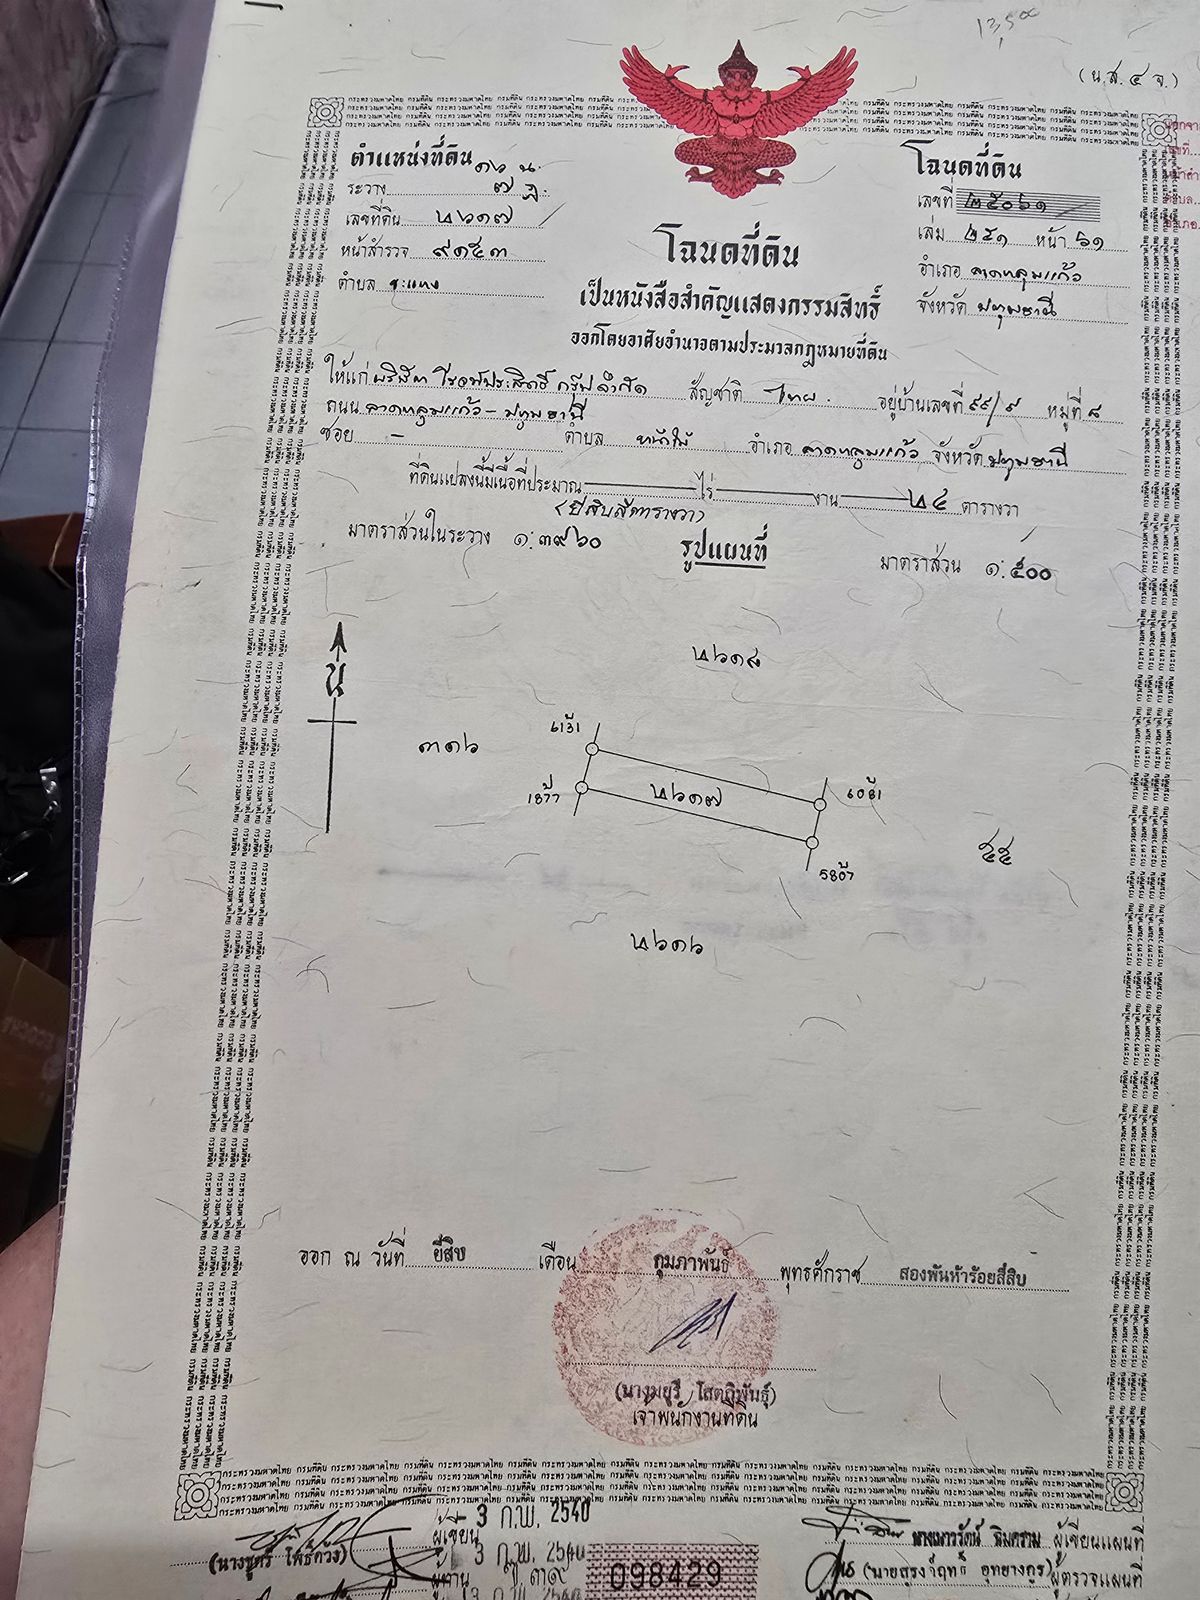 (น.ส.๔ จ.)
ตำแหน่งที่ดิน
ระวาง
เลขที่ดิน ๒๖๑๗
หน้าสำรวจ ๙๑๕๓
ตำบล ระแหง
โฉนดที่ดิน
เลขที่ ๒๕๐๖๑
เล่ม ๒๕๑ หน้า ๖๑
อำเภอ ลาดหลุมแก้ว
จังหวัด ปทุมธานี
โฉนดที่ดิน
เป็นหนังสือสำคัญแสดงกรรมสิทธิ์
ออกโดยอาศัยอำนาจตามประมวลกฎหมายที่ดิน
ให้แก่ บริษัท โรจน์ประสิทธิ์ กรุ๊ป จำกัด สัญชาติ ไทย อยู่บ้านเลขที่ ๙๙/๙ หมู่ที่ ๘
ถนน ลาดหลุมแก้ว - ปทุมธานี
ซอย - ตำบล หน้าไม้ อำเภอ ลาดหลุมแก้ว จังหวัด ปทุมธานี
ที่ดินแปลงนี้มีเนื้อที่ประมาณ ไร่ งาน ๒๔ ตารางวา
(ยี่สิบสี่ตารางวา)
มาตราส่วนในระวาง ๑:๓๙๖๐ รูปแผนที่ มาตราส่วน ๑:๕๐๐
น
๒๖๑๘
๓๑๖
๒๖๑๗
๕๕
๒๖๑๖
ออก ณ วันที่ ยี่สิบ เดือน กุมภาพันธ์ พุทธศักราช สองพันห้าร้อยสี่สิบ
(นางมยุรี โสตถิพันธุ์)
เจ้าพนักงานที่ดิน
กระทรวงมหาดไทย กรมที่ดิน
ผู้เขียน - 3 ก.พ. 2540
ผู้เขียนแผนที่
ผู้ตรวจแผนที่
098429